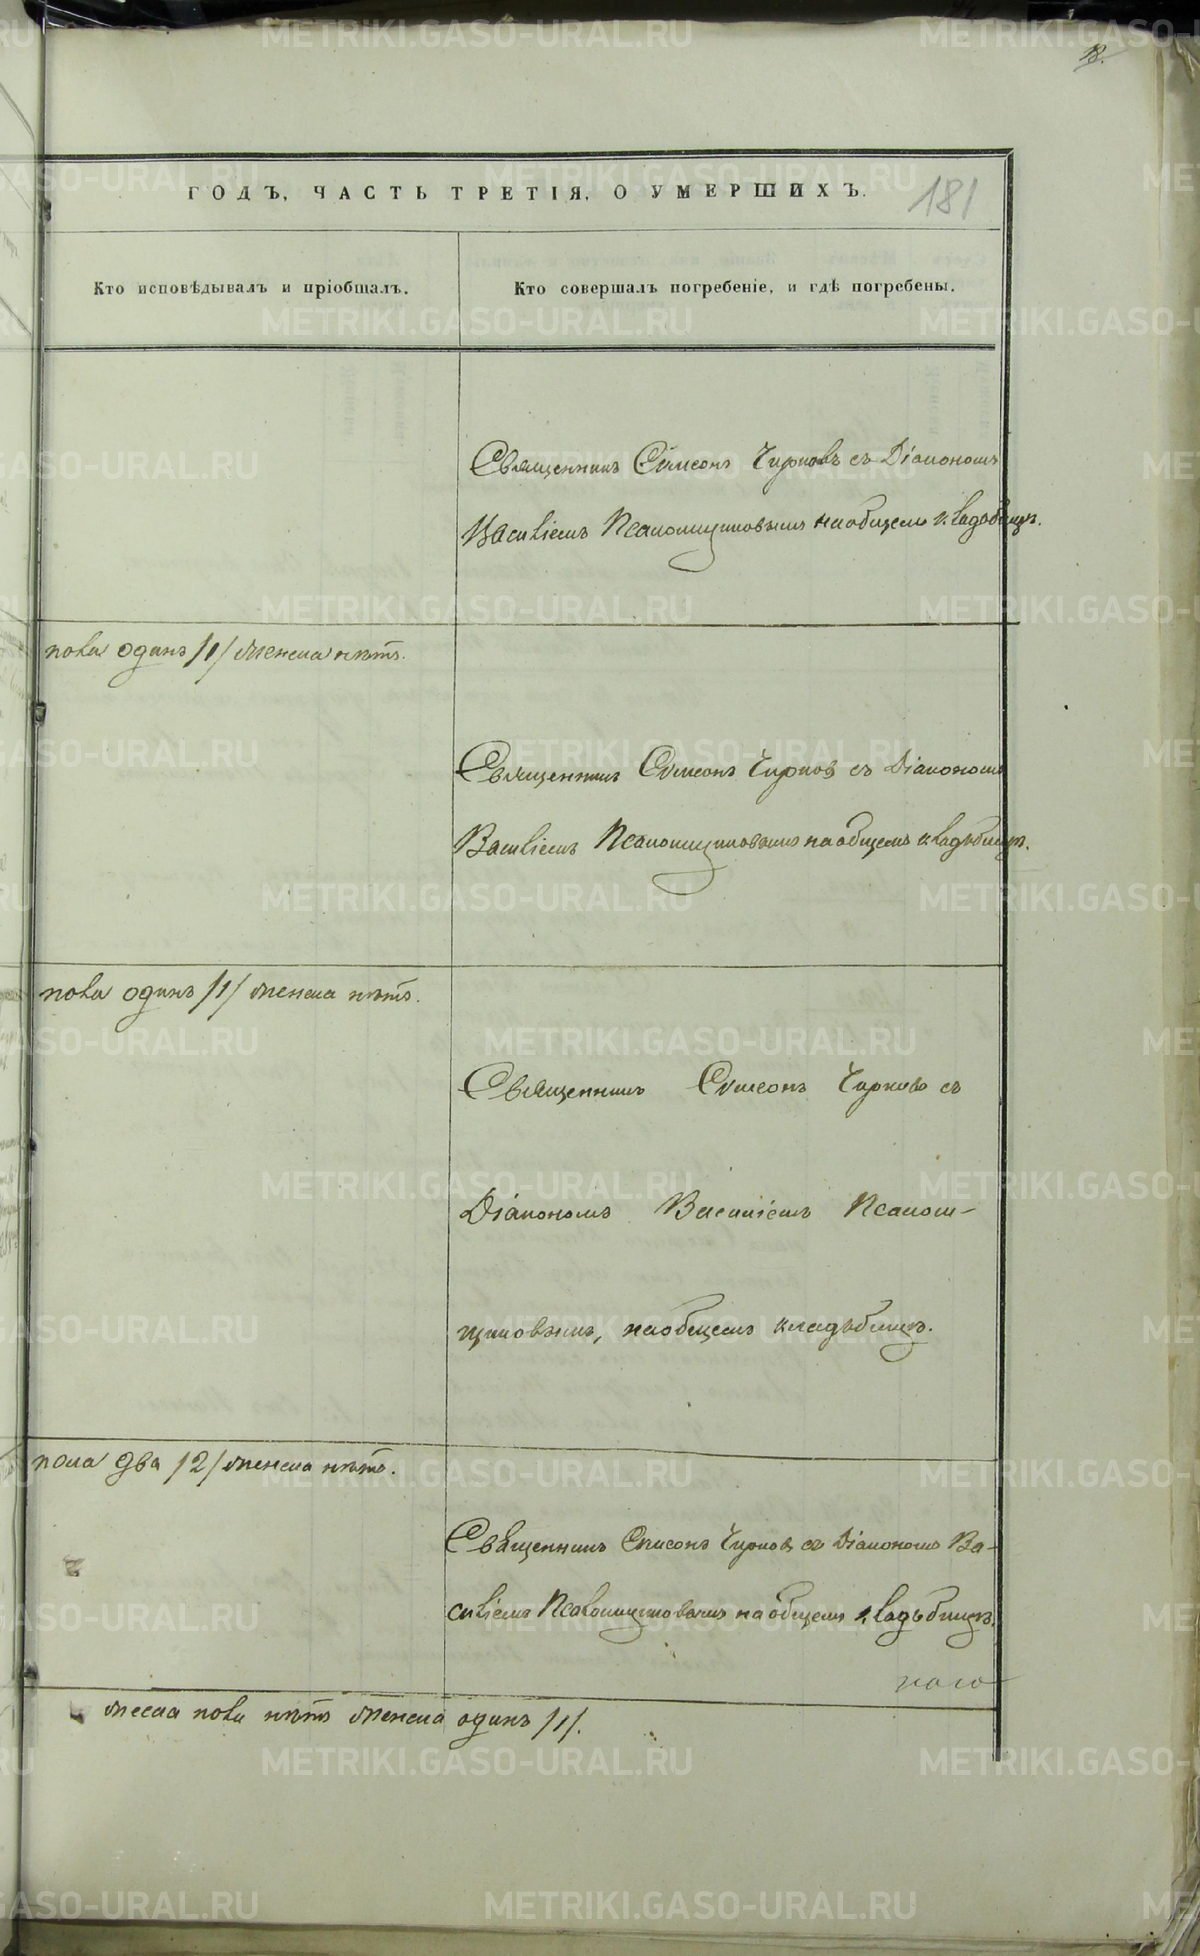 18.
ГОДЪ, ЧАСТЬ ТРЕТІЯ, О УМЕРШИХЪ.
181
Кто исповѣдывалъ и пріобщалъ.
Кто совершалъ погребеніе, и гдѣ погребены.
Священникъ Симеонъ Чирковъ съ Діакономъ
Василіемъ Псаломщиковымъ на общемъ кладбищѣ.
пола одинъ /1/ женска нѣтъ.
Священникъ Симеонъ Чирковъ съ Діакономъ
Василіемъ Псаломщиковымъ на общемъ кладъбищѣ.
пола одинъ /1/ женска нѣтъ.
Священникъ Симеонъ Чирковъ съ
Діакономъ Василіемъ Псалом-
щиковымъ, на общемъ кладъбищѣ.
пола два /2/ женска нѣтъ.
Священникъ Симеонъ Чирковъ съ Діакономъ Ва-
силіемъ Псаломщиковымъ на общемъ кладъбищѣ.
пола нѣтъ женска одинъ /1/.
METRIKI.GASO-URAL.RU